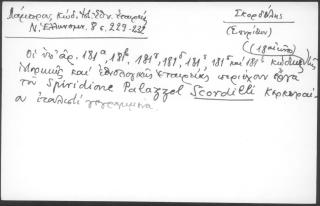 Λάμπρος, Κώδ. Ἱστ. Ἐθν. Ἑταιρίας
Ν. Ἑλληνομν. 8 σ. 229-232
Σκορδίλης
(Σπυρίδων)
(18 αἰών)
Οἱ ὑπ' ἀρ. 181α, 181β, 181γ, 181δ, 181ε, 181 καὶ 181 κώδικες τῆς
Ἱστορικῆς καὶ Ἐθνολογικῆς Ἑταιρείας περιέχουν ἔργα
τοῦ Spiridione Palazzol Scordilli Κερκυραί-
ου ἰταλιστὶ γεγραμμένα